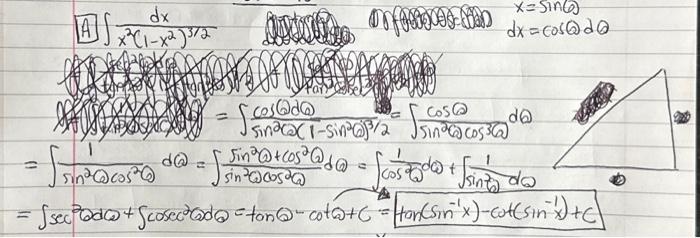 A ∫ dx / x²(1-x²)^3/2
x = sinθ
dx = cosθdθ
= ∫ cosθdθ / sin²θ(1-sin²θ)^3/2 = ∫ cosθ / sin²θcos³θ dθ
= ∫ 1 / sin²θcos²θ dθ = ∫ sin²θ+cos²θ / sin²θcos²θ dθ = ∫ 1 / cos²θ dθ + ∫ 1 / sin²θ dθ
= ∫sec²θdθ + ∫cosec²θdθ = tanθ - cotθ + C = tan(sin⁻¹x) - cot(sin⁻¹x) + C